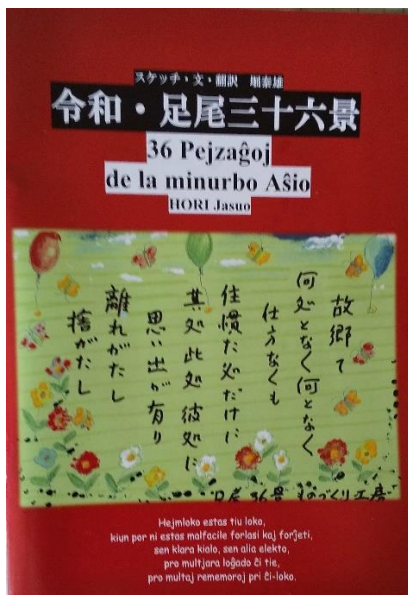 スケッチ・文・翻訳　堀泰雄
令和・足尾三十六景
36 Pejzaĝoj
de la minurbo Aŝio
HORI Jasuo
故郷て
何処となく何となく
仕方なくも
住慣た処だけに
其処此処彼処に
思い出が有り
離れがたし
捨がたし
足尾36景 ものづくり工房
Hejmloko estas tiu loko,
kiun por ni estas malfacile forlasi kaj forĵeti,
sen klara kialo, sen alia elekto,
pro multjara loĝado ĉi tie,
pro multaj rememoroj pri ĉi-loko.